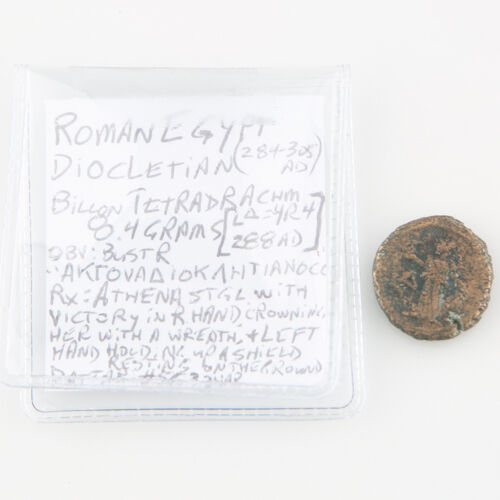 ROMAN EGYPT
DIOCLETIAN (284-305 AD)
BILLON TETRADRACHM
8.4 GRAMS [LΔ=YR4 288AD]
OBV: BUST R
"AKTOVAΔIOKΛHTIANOCC
RX: ATHENA STGL WITH
VICTORY IN R HAND CROWNING
HER WITH A WREATH, + LEFT
HAND HOLDING UP A SHIELD
RESTING ON THE GROUND